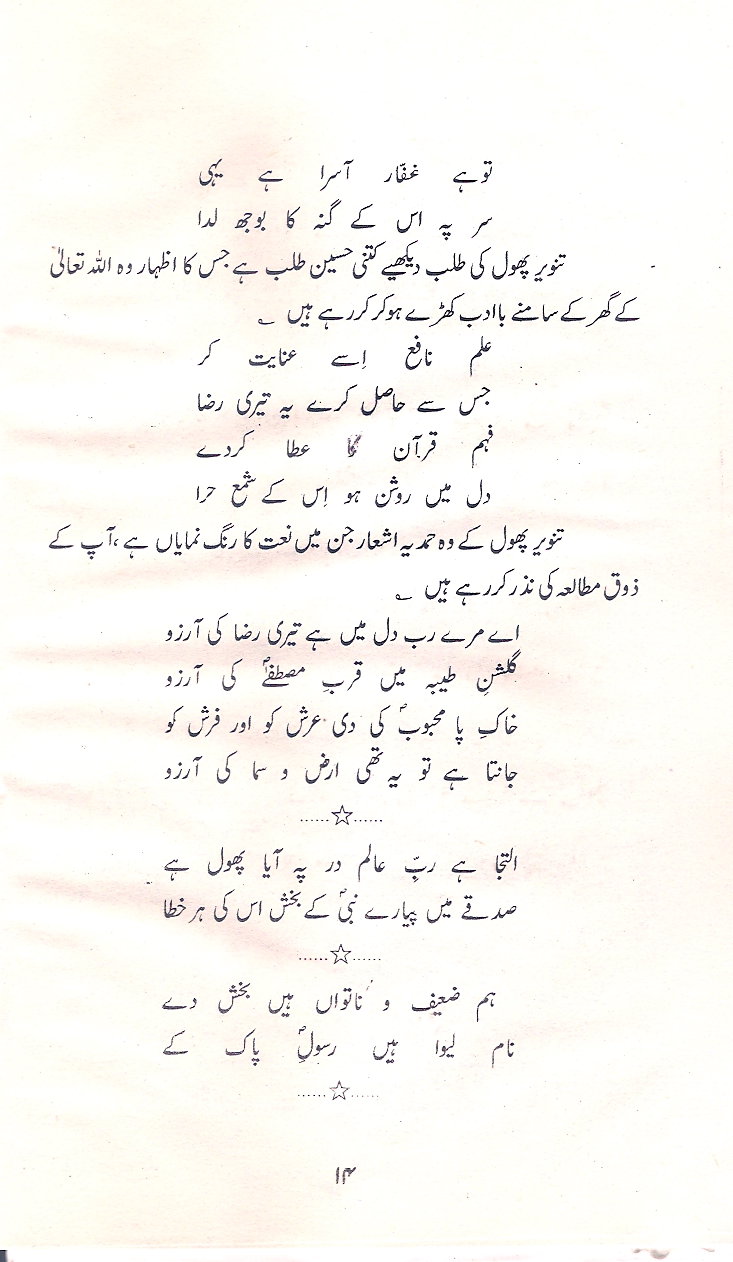 تو ہے غفّار آسرا ہے یہی
سر پہ اس کے گنہ کا بوجھ لدا
تنویر پھول کی طلب دیکھیے کتنی حسین طلب ہے جس کا اظہار وہ اللہ تعالیٰ
کے گھر کے سامنے باادب کھڑے ہوکر کررہے ہیں ؎
علم نافع اِسے عنایت کر
جس سے حاصل کرے یہ تیری رضا
فہم قرآن کا عطا کردے
دل میں روشن ہو اِس کے شمع حرا
تنویر پھول کے وہ حمدیہ اشعار جن میں نعت کا رنگ نمایاں ہے، آپ کے
ذوق مطالعہ کی نذر کررہے ہیں ؎
اے مرے رب دل میں ہے تیری رضا کی آرزو
گلشنِ طیبہ میں قربِ مصطفےؐ کی آرزو
خاکِ پا محبوبؐ کی دی عرش کو اور فرش کو
جانتا ہے تو یہ تھی ارض و سما کی آرزو
......☆......
التجا ہے ربِّ عالم در پہ آیا پھول ہے
صدقے میں پیارے نبیؐ کے بخش اس کی ہر خطا
......☆......
ہم ضعیف و ناتواں ہیں بخش دے
نام لیوا ہیں رسولِؐ پاک کے
......☆......
۱۴